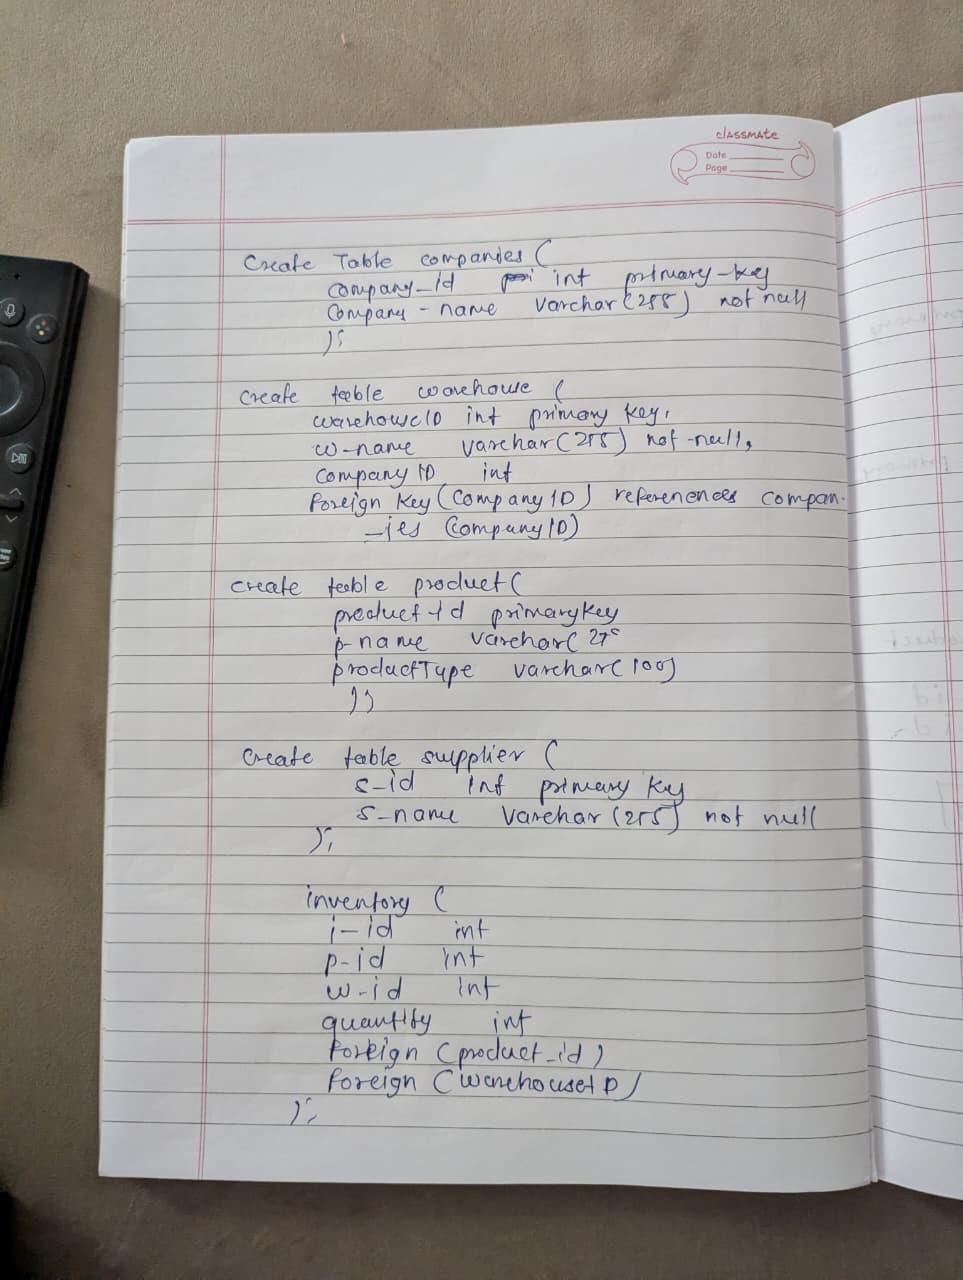 classmate
Date
Page
Create Table companies (
company_id int primary-key
Company-name varchar(255) not null
);
Create table warehouse (
warehouseID int primary key,
w-name varchar(255) not-null,
Company ID int
Foreign Key (Company ID) references compan-
-ies (CompanyID)
Create table product (
product id primarykey
p-name varchar(
productType varchar(100)
);
Create table supplier (
s-id int primary key
s-name varchar(255) not null
);
inventory (
i-id int
p-id int
w-id int
quantity int
foreign (product_id)
foreign (warehouseID)
);